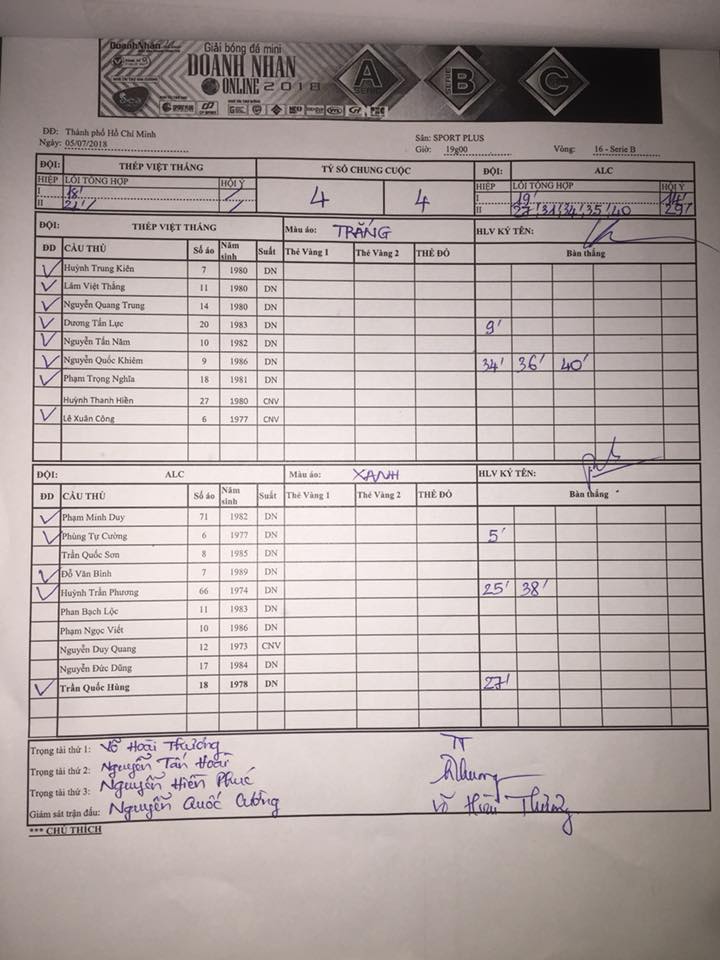 DoanhNhân
Giải bóng đá mini
DOANH NHÂN
ONLINE 2018
A
SERIE
B
C
ĐĐ: Thành phố Hồ Chí Minh Sân: SPORT PLUS
Ngày: 05/07/2018 Giờ: 19g00 Vòng: 16 - Serie B
ĐỘI: THÉP VIỆT THẮNG TỶ SỐ CHUNG CUỘC ĐỘI: ALC
HIỆP LỖI TỔNG HỢP HỘI Ý 4 4 HIỆP LỖI TỔNG HỢP HỘI Ý
I 18' / I 19' 14'
II 21' / II 27' 31' 34' 35' 40 29'
ĐỘI: THÉP VIỆT THẮNG Màu áo: TRẮNG HLV KÝ TÊN:
ĐD CẦU THỦ Số áo Năm sinh Suất Thẻ Vàng 1 Thẻ Vàng 2 THẺ ĐỎ Bàn thắng
✓ Huỳnh Trung Kiên 7 1980 DN
✓ Lâm Việt Thắng 11 1980 DN
✓ Nguyễn Quang Trung 14 1980 DN
✓ Dương Tấn Lực 20 1983 DN 9'
✓ Nguyễn Tấn Năm 10 1982 DN
✓ Nguyễn Quốc Khiêm 9 1986 DN 34' 36' 40'
✓ Phạm Trọng Nghĩa 18 1981 DN
Huỳnh Thanh Hiền 27 1980 CNV
✓ Lê Xuân Công 6 1977 CNV
ĐỘI: ALC Màu áo: XANH HLV KÝ TÊN:
ĐD CẦU THỦ Số áo Năm sinh Suất Thẻ Vàng 1 Thẻ Vàng 2 THẺ ĐỎ Bàn thắng
✓ Phạm Minh Duy 71 1982 DN
✓ Phùng Tự Cường 6 1977 DN 5'
Trần Quốc Sơn 8 1985 DN
✓ Đỗ Văn Bình 7 1989 DN
✓ Huỳnh Trần Phương 66 1974 DN 25' 38'
Phan Bạch Lộc 11 1983 DN
Phạm Ngọc Viết 10 1986 DN
Nguyễn Duy Quang 12 1973 CNV
Nguyễn Đức Dũng 17 1984 DN
✓ Trần Quốc Hùng 18 1978 DN 27'
Trọng tài thứ 1: Võ Hoài Thương
Trọng tài thứ 2: Nguyễn Tấn Hoài
Trọng tài thứ 3: Nguyễn Hiền Phúc
Giám sát trận đấu: Nguyễn Quốc Cường
*** CHÚ THÍCH